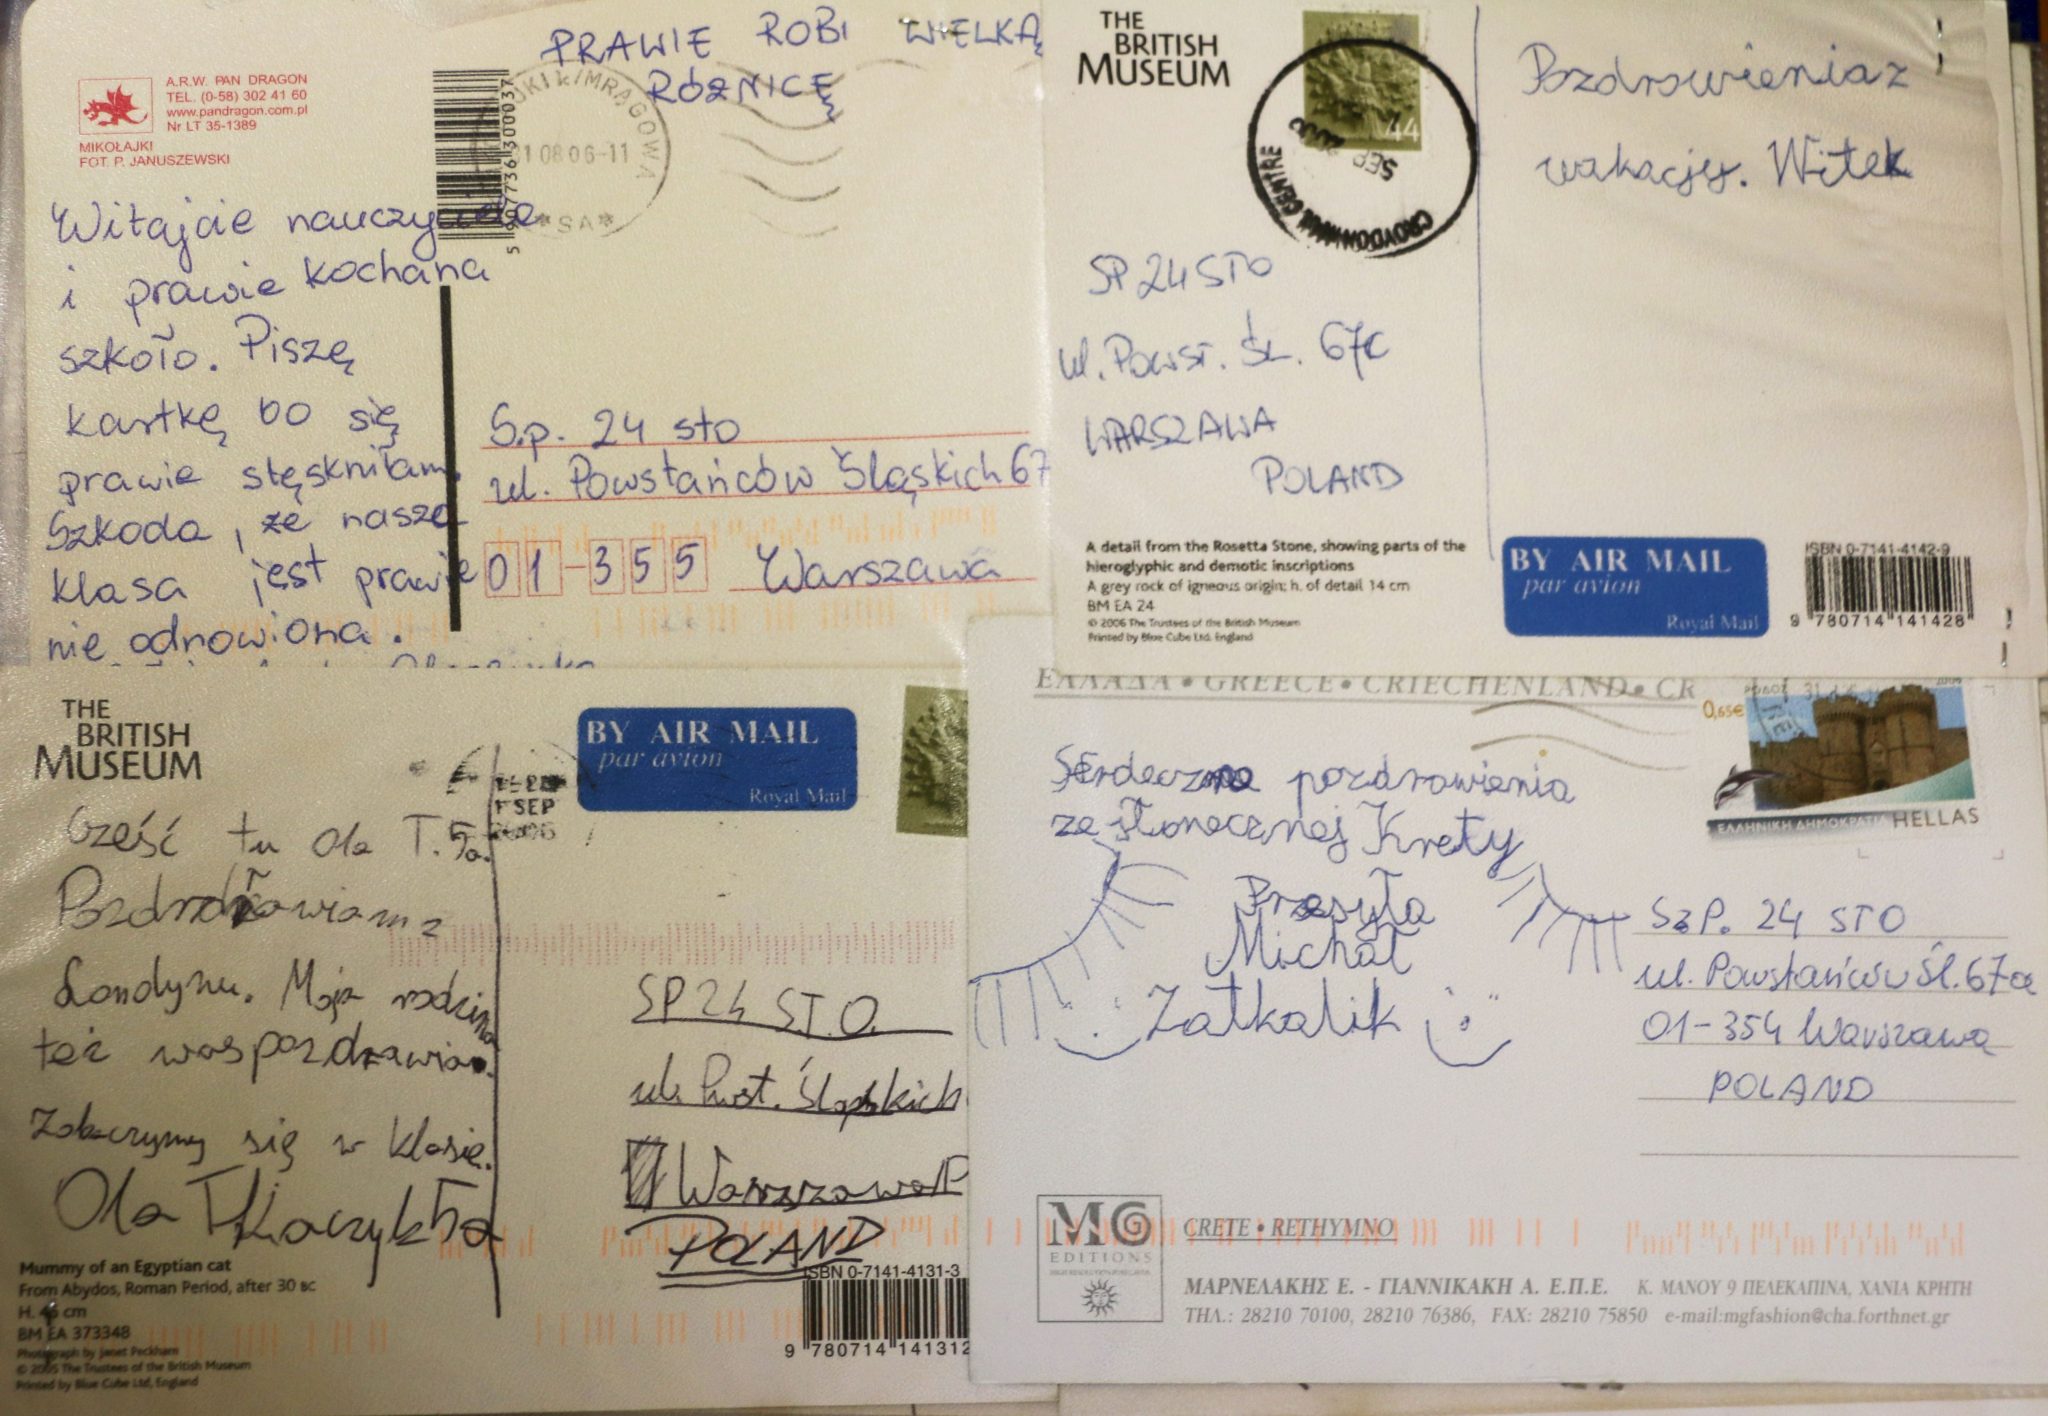 PRAWIE ROBI WIELKĄ
RÓŻNICĘ
A.R.W. PAN DRAGON
TEL. (0-58) 302 41 60
www.pandragon.com.pl
Nr LT 35-1389
MIKOŁAJKI
FOT. P. JANUSZEWSKI
5 907736 300037
01 08 06-11
Witajcie nauczyciele
i prawie kochana
szkoło. Piszę
kartkę bo się
prawie stęskniłam.
Szkoda, że nasza
klasa jest prawie
nie odnowiona.
S.p. 24 sto
ul. Powstańców Śląskich 67
01-355 Warszawa
THE
BRITISH
MUSEUM
44
SEP
Pozdrowienia z
wakacjej. Witek
SP 24 STO
ul. Powst. Śl. 67C
WARSZAWA
POLAND
A detail from the Rosetta Stone, showing parts of the
hieroglyphic and demotic inscriptions
A grey rock of igneous origin; h. of detail 14 cm
BM EA 24
© 2006 The Trustees of the British Museum
Printed by Blue Cube Ltd, England
BY AIR MAIL
par avion
Royal Mail
ISBN 0-7141-4142-9
9 780714 141428
THE
BRITISH
MUSEUM
BY AIR MAIL
par avion
Royal Mail
SEP
2006
Cześć tu Ola T. 5a.
Pozdrawiam z
Londynu. Moja rodzina
też was pozdrawia.
Zobaczymy się w klasie.
Ola Tkaczyk 5a
SP 24 S.T.O.
ul. Powst. Śląskich
Warszawa
POLAND
Mummy of an Egyptian cat
From Abydos, Roman Period, after 30 BC
H. 46 cm
BM EA 373348
Photograph by Janet Peckham
© 2005 The Trustees of the British Museum
Printed by Blue Cube Ltd, England
ISBN 0-7141-4131-3
9 780714 141312
ΕΛΛΑΔΑ • GREECE • GRIECHENLAND • CR
0,65€
ΕΛΛΗΝΙΚΗ ΔΗΜΟΚΡΑΤΙΑ HELLAS
Serdeczne pozdrowienia
ze słonecznej Krety
Przesyła
Michał
Zatkalik
SzP. 24 STO
ul. Powstańców Śl. 67a
01-354 Warszawa
POLAND
MG
EDITIONS
CRETE • RETHYMNO
ΜΑΡΝΕΛΑΚΗΣ Ε. - ΓΙΑΝΝΙΚΑΚΗ Α. Ε.Π.Ε. Κ. ΜΑΝΟΥ 9 ΠΕΛΕΚΑΠΙΝΑ, ΧΑΝΙΑ ΚΡΗΤΗ
ΤΗΛ.: 28210 70100, 28210 76386, FAX: 28210 75850 e-mail:mgfashion@cha.forthnet.gr